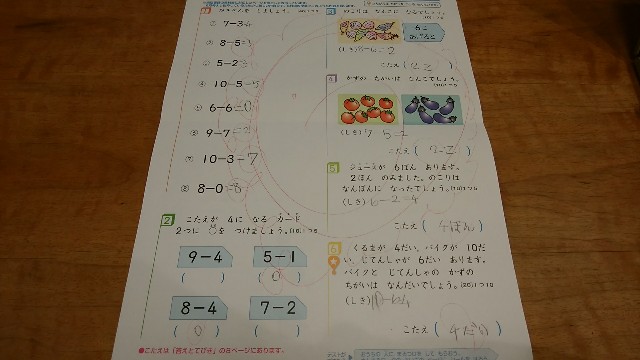 7-3=4
8-5=3
5-2=3
10-5=5
6-6=0
9-7=2
10-3=7
8-0=8
2 こたえが 4に なる カード
2つに ○を つけましょう。
9-4
5-1
( )
(0)
8-4
7-2
(0)
( )
●こたえは「答えとてびき」の8ページにあります。
のこりは なんこに なるでしょう。
6こ
あげると
(しき) 8-6=2
こたえ (2こ)
4 かずの ちがいは なんこでしょう。
(しき) 7-5=2
こたえ (2こ)
5 ジュースが 6ぽん あります。
2ほん のみました。のこりは
なんぼんに なったでしょう。
(しき) 6-2=4
こたえ (4ほん)
6 くるまが 4だい、バイクが 10だ
い、じてんしゃが 6だい あります。
バイクと じてんしゃの かずの
ちがいは なんだいでしょう。
(しき) 10-6=4
こたえ (4だい)